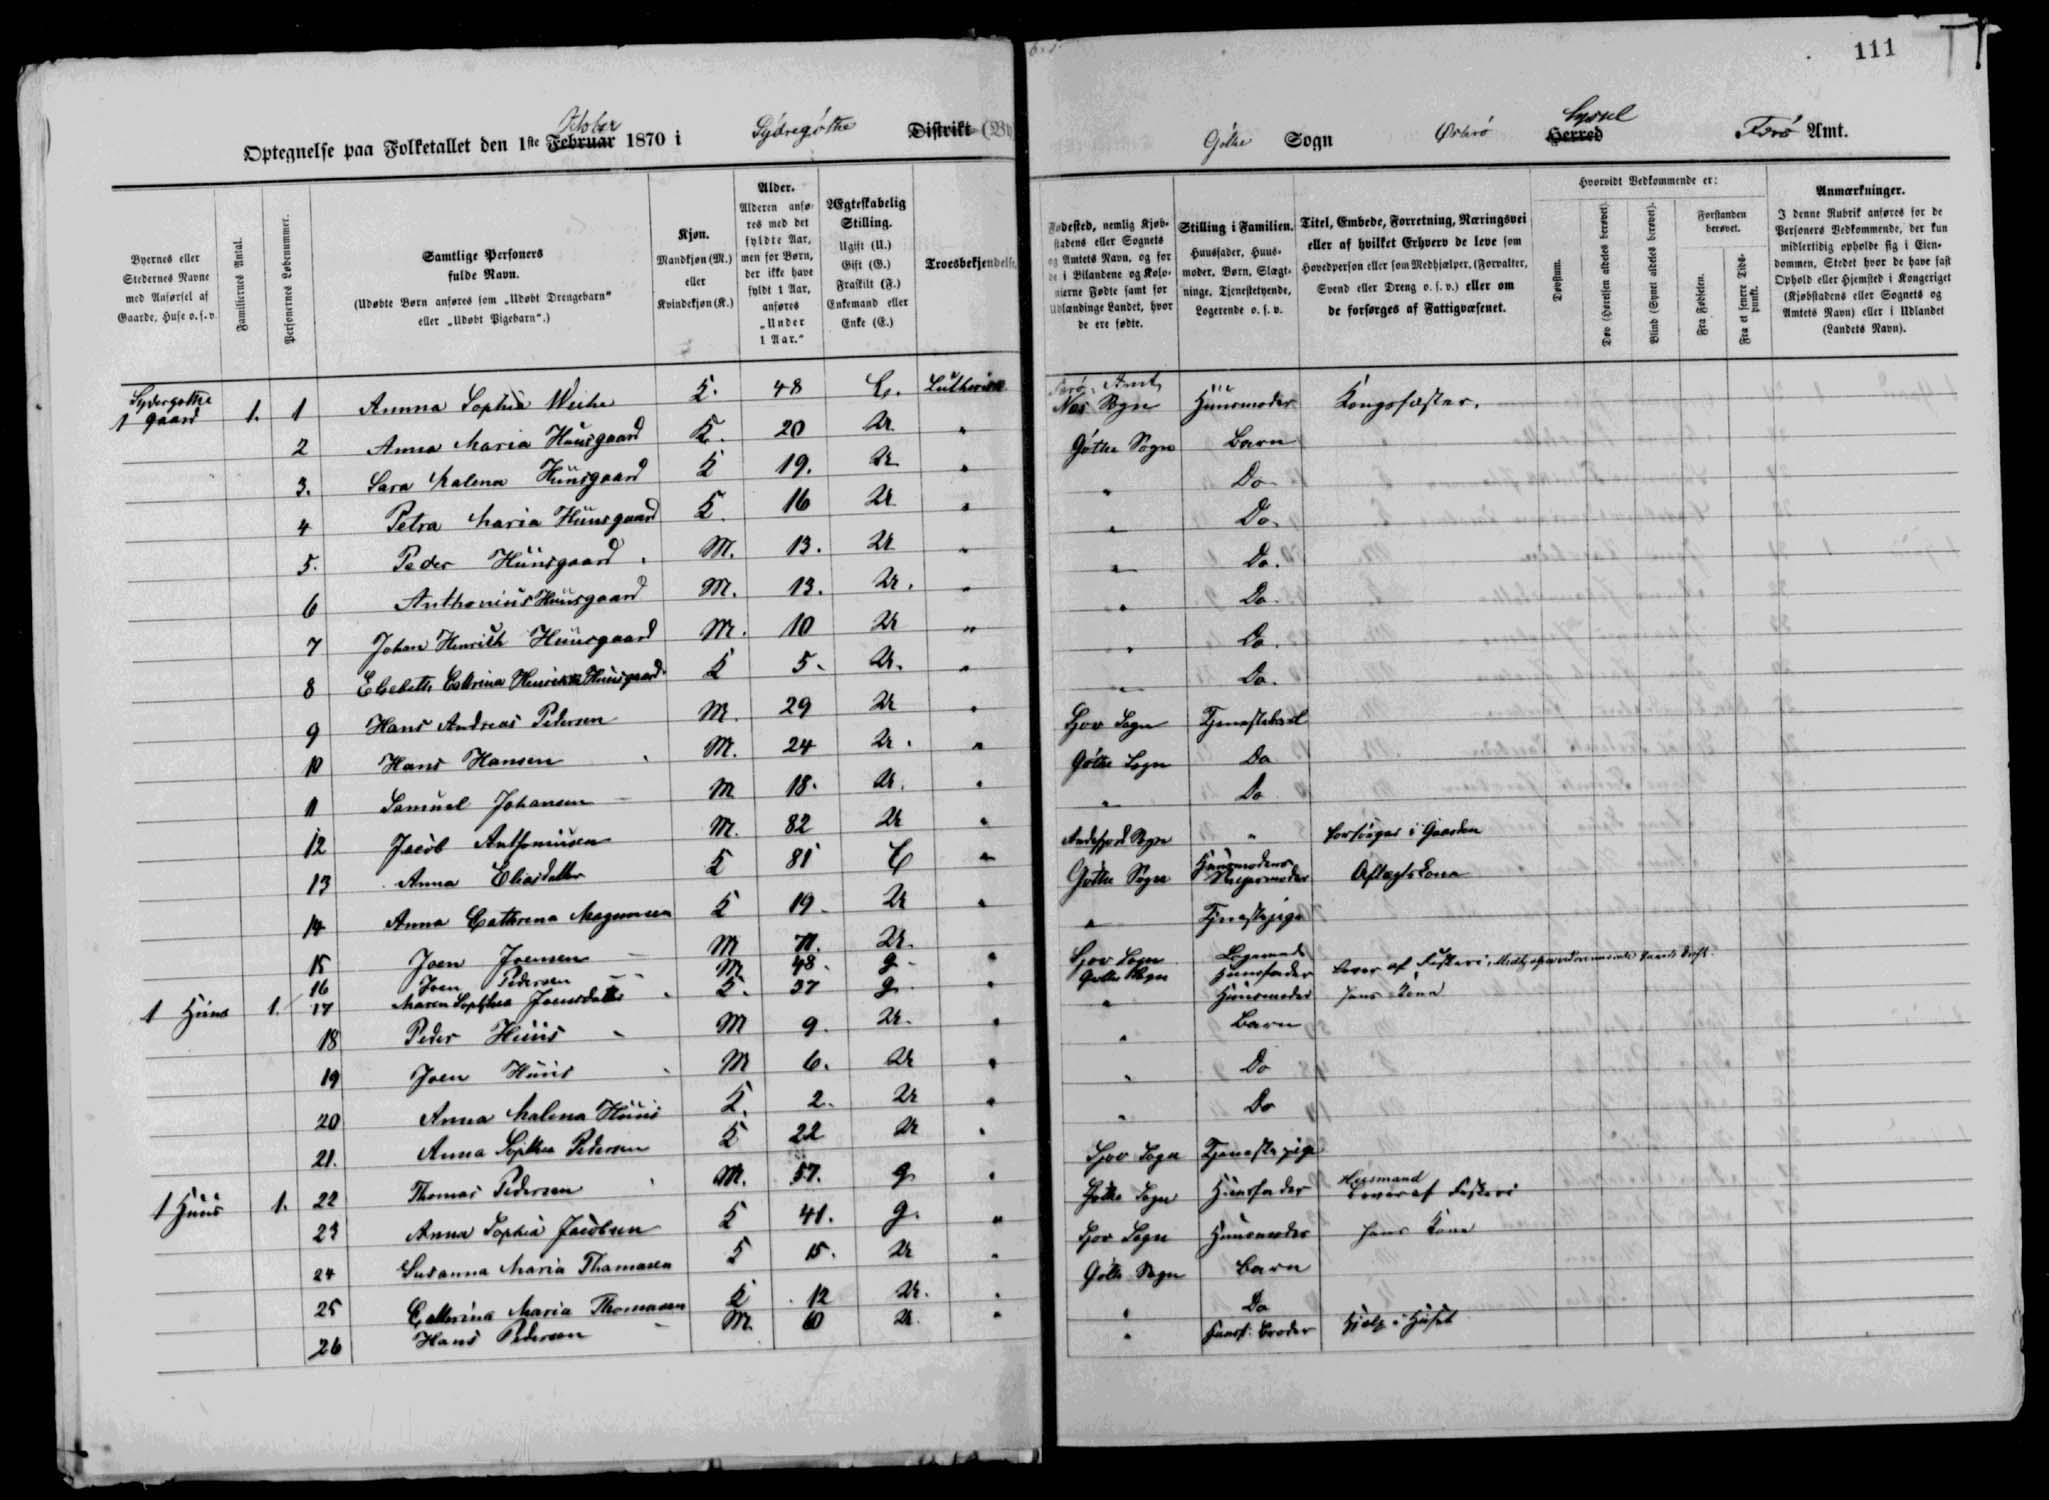 111
Optegnelse paa Folketallet den 1ste Februar October 1870 i Sydregöthe Distrikt (By
Göthe Sogn Österö Herred Syssel Færö Amt.
Byernes eller Stedernes Navne med Anførsel af Gaarde, Huse o. s. v.
Familiernes Antal.
Personernes Løbenummer.
Samtlige Personers fulde Navn.
(Udøbte Børn anføres som „Udøbt Drengebarn" eller „Udøbt Pigebarn".)
Kjøn.
Mandkjøn (M.) eller Kvindekjøn (K.)
Alder.
Alderen anføres med det fyldte Aar, men for Børn, der ikke have fyldt 1 Aar, anføres „Under 1 Aar."
Ægteskabelig Stilling.
Ugift (U.) Gift (G.) Fraskilt (F.) Enkemand eller Enke (E.)
Troesbekjendelse.
Fødested, nemlig Kjøbstadens eller Sognets og Amtets Navn, og for de i Bilandene og Kolonierne Fødte samt for Udlændinge Landet, hvor de ere fødte.
Stilling i Familien.
Huusfader, Huusmoder, Børn, Slægtninge, Tjenestetyende, Logerende o. s. v.
Titel, Embede, Forretning, Næringsvei eller af hvilket Erhverv de leve som Hovedperson eller som Medhjælper, (Forvalter, Svend eller Dreng o. s. v.) eller om de forsørges af Fattigvæsenet.
Hvorvidt Vedkommende er:
Døvstum.
Døv (Hørelsen aldeles berøvet).
Blind (Synet aldeles berøvet).
Forstanden berøvet.
Fra Fødselen.
Fra et senere Tidspunkt.
Anmærkninger.
I denne Rubrik anføres for de Personers Vedkommende, der kun midlertidig opholde sig i Eiendommen, Stedet hvor de have fast Ophold eller Hjemsted i Kongeriget (Kjøbstadens eller Sognets og Amtets Navn) eller i Udlandet (Landets Navn).
Sydregöthe
1 Gaard 1. 1 Annna Sophia Weihe K. 48 E. Luthersk Færö Amt, Næs Sogn Huusmoder Kongsfæster.
2 Anna Maria Huusgaard K. 20 U. " Göthe Sogn Barn
3. Sara Malena Huusgaard K 19. U " " Do
4 Petra Maria Huusgaard K. 16 U " " Do.
5. Peder Huusgaard M. 13. U " " Do.
6 Anthonius Huusgaard M. 13. U. " " Do.
7 Johan Henrik Huusgaard M. 10 U " " Do.
8 Elsebeth Cathrina Henrikka Huusgaard K 5. U. " " Do.
9 Hans Andreas Pedersen M. 29 U " Sjov Sogn Tjenestekarl
10 Hans Hansen M. 24 U. " Göthe Sogn Do
11 Samuel Johansen M 18. U. " " Do
12 Jacob Anthoniusen M. 82 U " Andefjord Sogn " forsörges i Gaarden
13 Anna Eliasdatter K 81 E " Göthe Sogn Huusmoderens Aftægtskona
14 Anna Cathrina Magnussen K 19. U " " Tjenestepige
15 Joen Joensen M 71. U. " Sjov Sogn Logerende
16 Joen Pedersen M 48. g. " Göthe Sogn Huusfader Lever af Fiskeri,
1 Huus 1. 17 Maren Sophia Joensdatter K. 37 g. " " Huusmoder hans Kona
18 Peder Huus M 9. U. " " Barn
19 Joen Huus M 6. U " " Do
20 Anna Malena Huus K. 2. U " " Do
21. Anna Sophia Pedersen K 22 U " Sjov Sogn Tjenestepige
1 Huus 1. 22 Thomas Pedersen M. 57. g " Göthe Sogn Huusfader Huusmand Lever af Fiskeri
23 Anna Sophia Jacobsen K 41. g. " Sjov Sogn Huusmoder hans Kona
24 Susanna Maria Thomasen K 15. U " Göthe Sogn Barn
25 Cathrina Maria Thomasen K 12 U. " " Do
26 Hans Pedersen M. 60 U. " " Huusf. Broder Hjelp i Huset